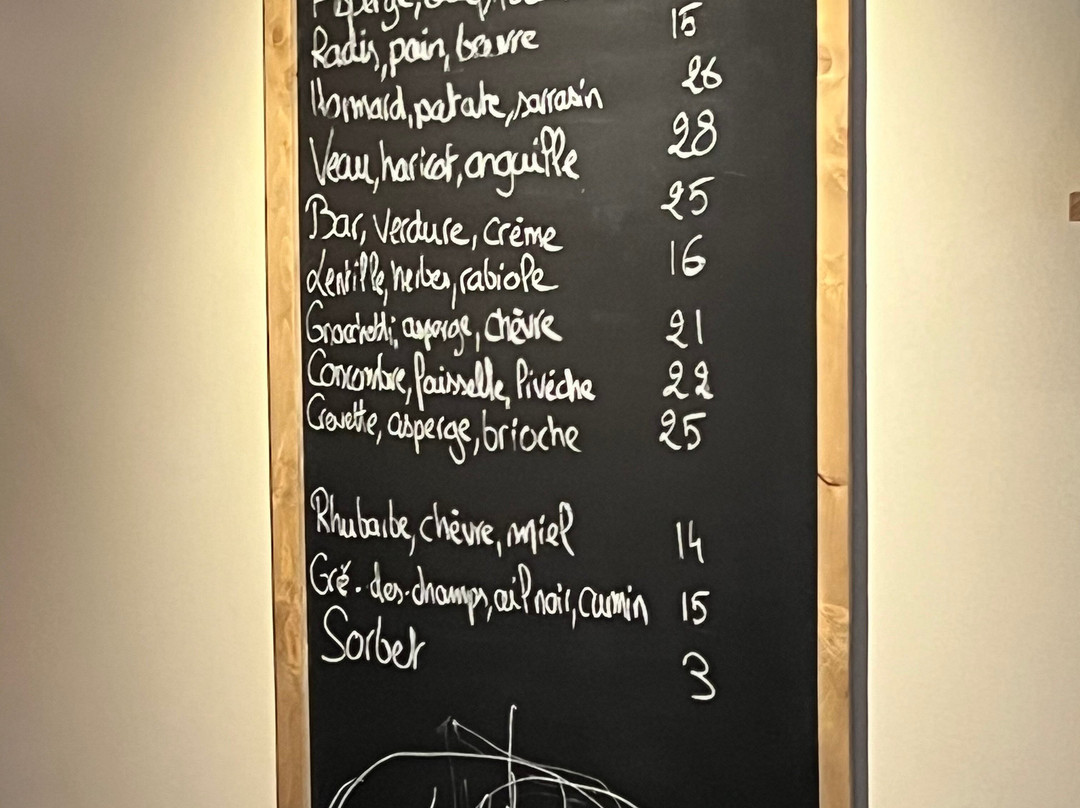 Asperge,
Radis, pain, beurre 15
Homard, patate, sarrasin 26
Veau, haricot, anguille 28
Bar, verdure, crème 25
Lentille, herbes, rabiole 16
Gnocchetti, asperge, chèvre 21
Concombre, faisselle, livèche 22
Crevette, asperge, brioche 25
Rhubarbe, chèvre, miel 14
Gré.des.champs, ail noir, cumin 15
Sorbet 3